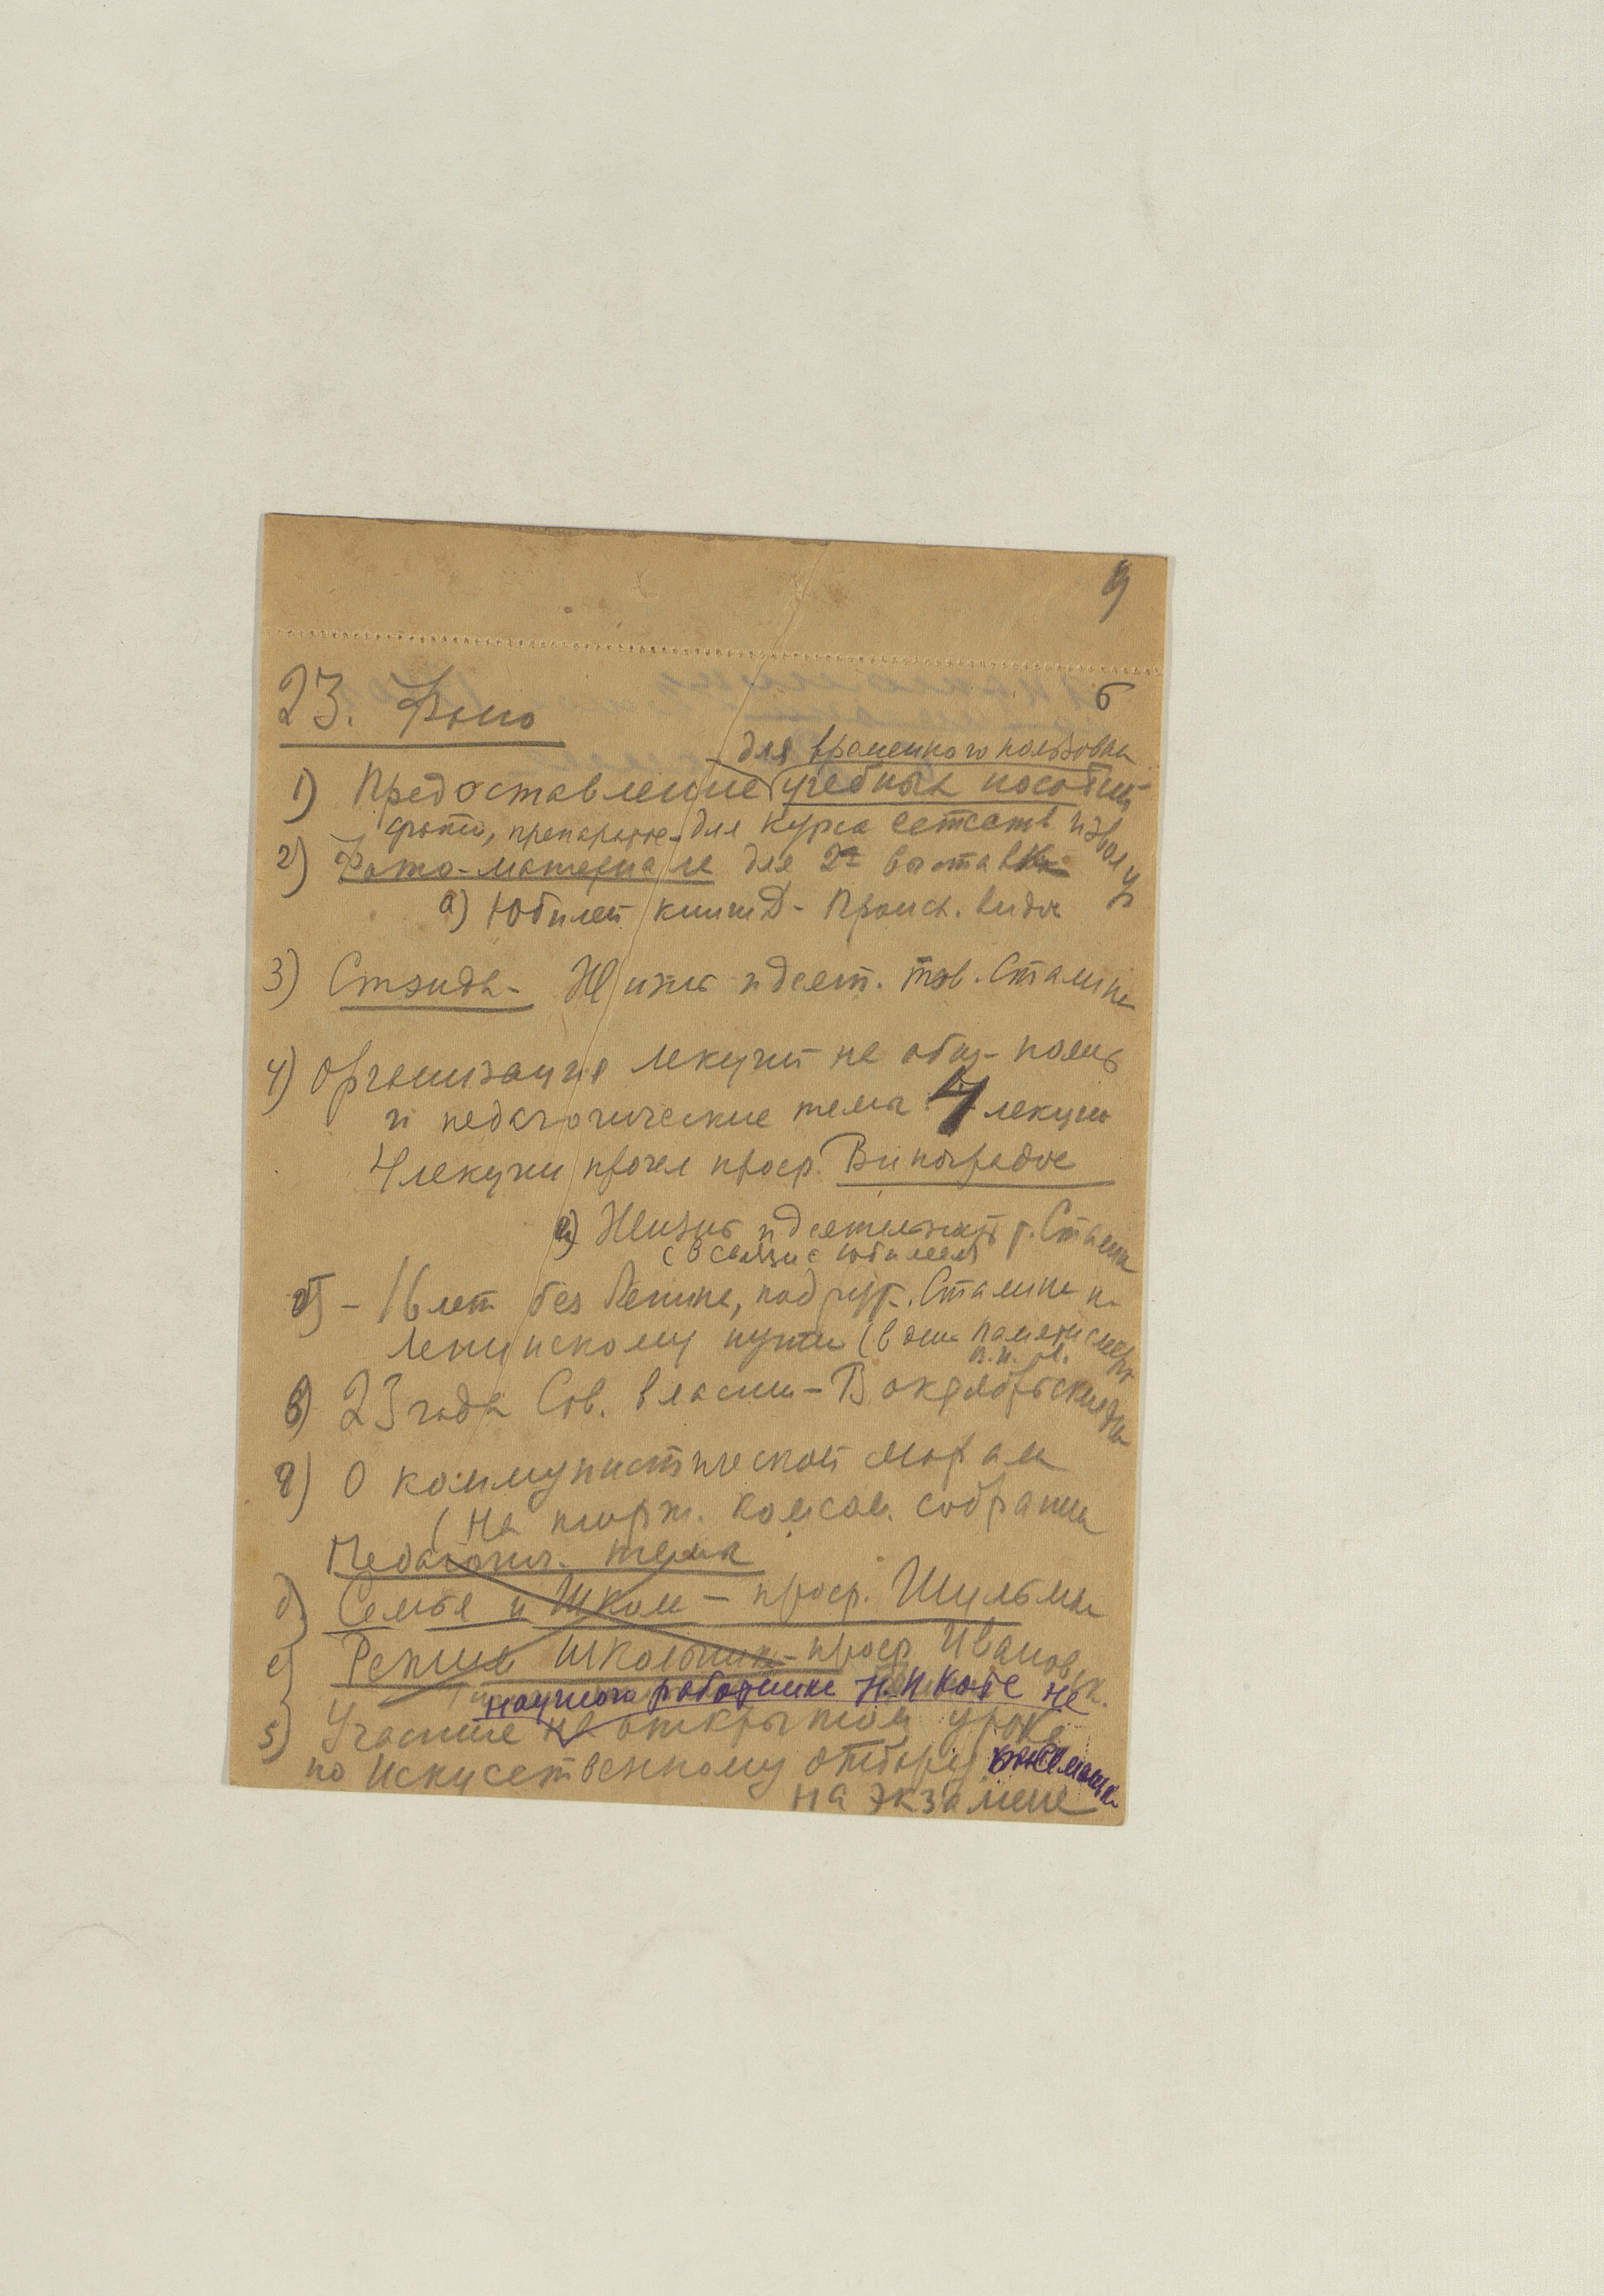 9
б
23. Фото
для временного пользован
1) Предоставление учебных пособий
фото, препараты - для курса естеств и эволуц
2) Фото-материала для 2х выставк
а) Юбилей книги Д - Происх. видов
3) Стэнда - Жизнь и деят. тов. Сталина
4) Организация лекций на общ-полит
и педагогические темы 4 лекции
4 лекции прочел проф. Виноградов
а) Жизнь и деятельность т. Сталина
(в связи с юбилеем)
б) - 16 лет без Ленина, под рук. Сталина по
Ленинскому пути (в дни памяти смерти
В. И. Л.
в) 23 года Сов. власти - В октябрьские дни
г) О коммунистической морали
(На торж. комсом. собрании
Педагогич. темы
д) Семья и Школа - проф. Шульман
е) Режим школьника - проф Ивановск.
научного работника Н. И Коте не
5) Участие на открытом уроке
по Искусственному отбору
на экзамене